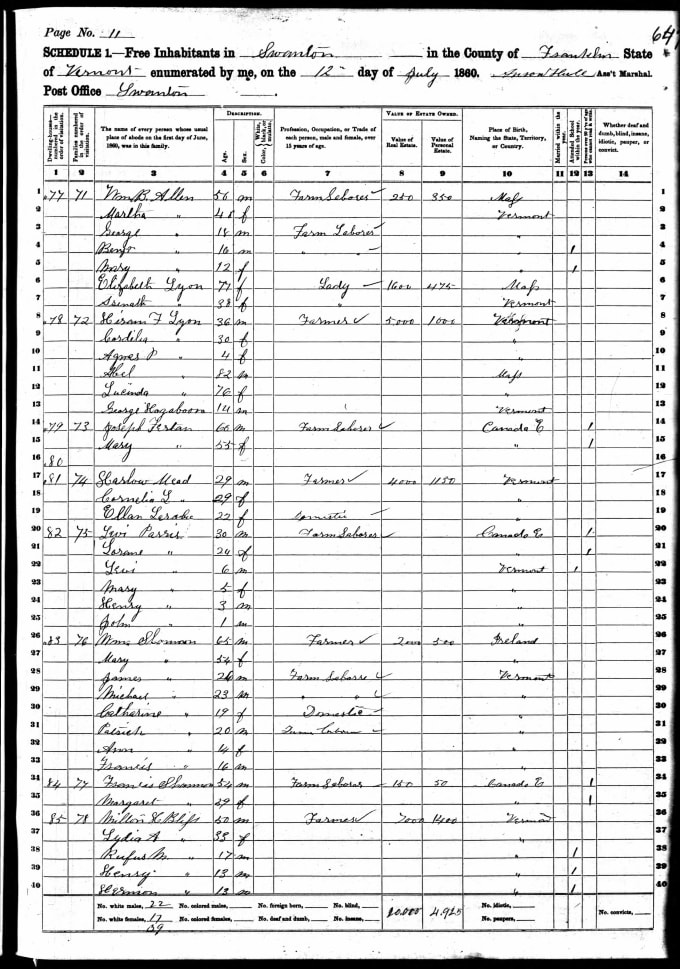 Page No. 11
SCHEDULE 1.—Free Inhabitants in Swanton in the County of Franklin State
of Vermont enumerated by me, on the 12 day of July 1860. Ass't Marshal.
Post Office Swanton
Dwelling-houses numbered in the order of visitation.
Families numbered in the order of visitation.
The name of every person whose usual place of abode on the first day of June, 1860, was in this family.
DESCRIPTION.
Age.
Sex.
Color, White, black, or mulatto.
Profession, Occupation, or Trade of each person, male and female, over 15 years of age.
VALUE OF ESTATE OWNED.
Value of Real Estate.
Value of Personal Estate.
Place of Birth, Naming the State, Territory, or Country.
Married within the year.
Attended School within the year.
Persons over 20 y'rs of age who cannot read & write.
Whether deaf and dumb, blind, insane, idiotic, pauper, or convict.
1 2 3 4 5 6 7 8 9 10 11 12 13 14
1 77 71 Wm B. Allen 56 m Farm Laborer 250 350 Mass 1
2 Martha " 48 f Vermont 2
3 George " 18 m Farm Laborer " 3
4 Benj " 16 m " " " 1 4
5 Mary " 12 f " 1 5
6 Elizabeth Lyon 77 f Lady 1600 475 Mass 6
7 " 38 f " Vermont 7
8 78 72 Hiram F Lyon 36 m Farmer 5000 1000 Vermont 8
9 Cordelia " 30 f " 9
10 Agnes P " 4 f " 10
11 Abel " 82 m Mass 11
12 Lucinda " 76 f " 12
13 George Hogaboom 14 m Vermont 13
14 79 73 Joseph 60 m Farm Laborer Canada E 1 14
15 Mary " 55 f " 1 15
16 80 16
17 81 74 Harlow Mead 29 m Farmer 4000 1150 Vermont 17
18 Cornelia L " 29 f " 18
19 Ellan 22 f Domestic " 19
20 82 75 Levi Parris 30 m Farm Laborer Canada E 1 20
21 " 24 f " 1 21
22 Levi " 6 m Vermont 1 22
23 Mary " 5 f " 23
24 Henry " 3 m " 24
25 John " 1 m " 25
26 83 76 Wm 65 m Farmer 2000 300 Ireland 26
27 Mary " 54 f " 27
28 James " 26 m Farm Labore Vermont 28
29 Michael " 23 m " " " 29
30 Catharine " 19 f Domestic " 30
31 Patrick " 20 m " 31
32 Ann " 14 f " 32
33 Francis " 16 m " 33
34 84 77 Francis Shannon 54 m Farm Laborer 150 50 Canada E 1 34
35 Margaret " 29 f " 1 35
36 85 78 Milton H Bliss 50 m Farmer 7000 1400 Vermont 36
37 Lydia A " 33 f " 37
38 Rufus M. " 17 m " 1 38
39 Henry " 13 m " 1 39
40 Hermon " 13 m " 1 40
No. white males, 22 No. colored males, No. foreign born, No. blind, 20.000 4.925 No. idiotic, No. convicts,
No. white females, 17 No. colored females, No. deaf and dumb, No. insane, No. paupers,
39